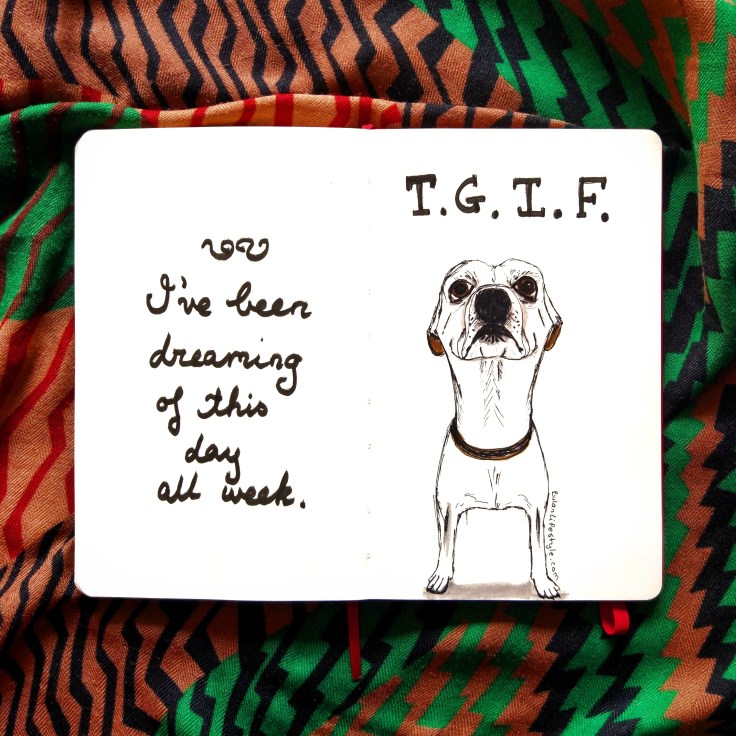 I've been
dreaming
of this
day
all week.
T.G.I.F.
BulanLifestyle.com